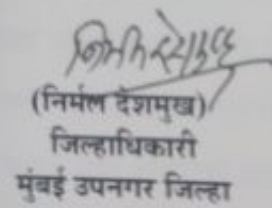 (निर्मल देशमुख)
जिल्हाधिकारी
मुंबई उपनगर जिल्हा